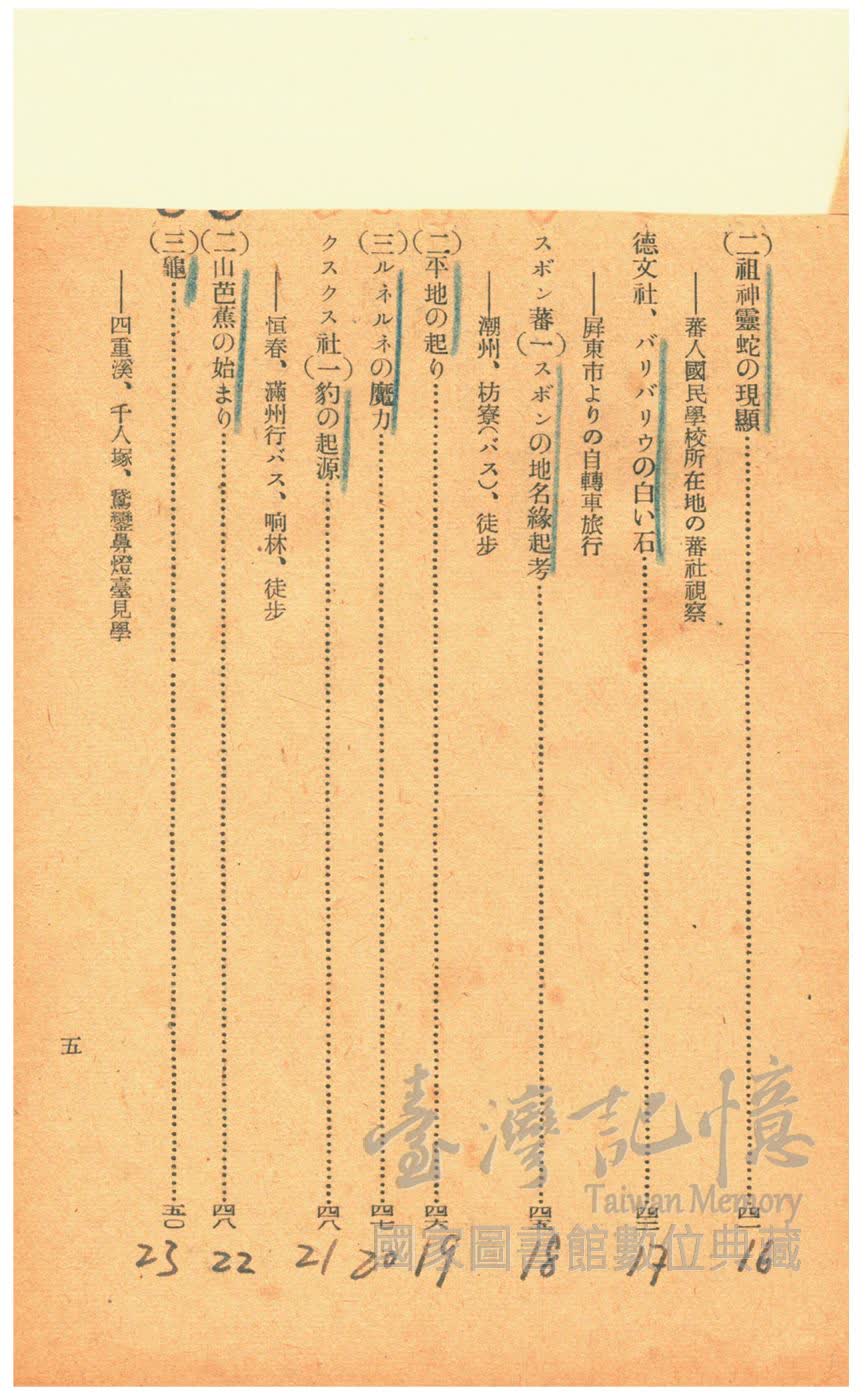 (二)祖神靈蛇の現顯……四一
――蕃人國民學校所在地の蕃社視察
德文社、バリバリウの白い石……四三
――屏東市よりの自轉車旅行
スボン蕃(一)スボンの地名緣起考……四五
――潮州、枋寮(バス)、徒步
(二)平地の起り……四六
(三)ルネルネの魔力……四七
クスクス社(一)豹の起源……四八
――恒春、滿州行バス、响林、徒步
(二)山芭蕉の始まり……四八
(三)龜……五〇
――四重溪、千人塚、鵞鑾鼻燈臺見學
五
16
17
18
19
20
21
22
23
臺灣記憶
Taiwan Memory
國家圖書館數位典藏